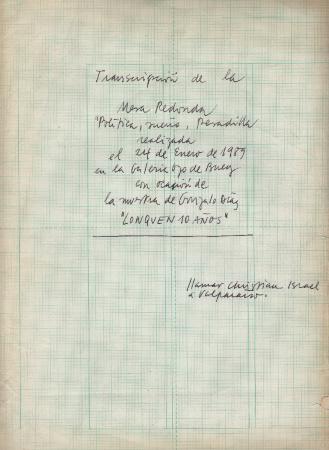 Transcripción de la
Mesa Redonda
"Política, sueño, Pesadilla
realizada
el 24 de Enero de 1989
en la Galería Ojo de Buey
con ocasión de
la muestra de Gonzalo Díaz
"LONQUEN 10 AÑOS"
llamar Christian Israel
a Valparaíso.